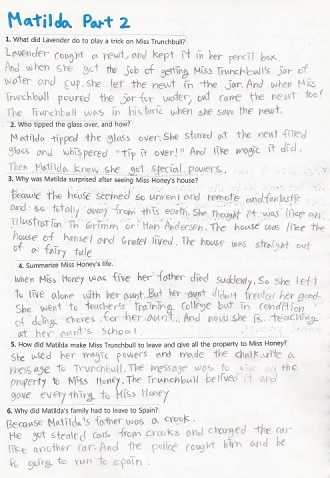 Matilda Part 2
1. What did Lavender do to play a trick on Miss Trunchbull?
Lavender cought a newt, and kept it in her pencil box.
And when she got the job of getting Miss Trunchbull's jar of
water and cup. She let the newt in the jar. And when Miss
Trunchbull poured the jar for water, out came the newt too!
The Trunchbull was in historic when she saw the newt.
2. Who tipped the glass over, and how?
Matilda tipped the glass over. She stared at the newt filled
glass and whispered "tip it over!" And like magic it did.
Then Matilda knew she got special powers.
3. Why was Matilda surprised after seeing Miss Honey's house?
Because the house seemed so unreal and remote and fantastic
and so totally away from this earth. She thought it was like an
illustration in Grimm or Han Andersen. The house was like the
house of hansel and Gretel lived. The house was straight out
of a fairy tule
4. Summarize Miss Honey's life.
When Miss Honey was five her father died suddenly. So she left
to live alone with her aunt. But her aunt didn't treated her good.
She went to teacher's training college but in condition
of doing chores for her aunt. And now she is teaching
at her aunt's school.
5. How did Matilda make Miss Trunchbull to leave and give all the property to Miss Honey?
She used her magic powers and made the chalk write a
message to Trunchbull. The message was to give all the
property to Miss Honey. The Trunchbull belived it and
gave everything to Miss Honey
6. Why did Matilda's family had to leave to Spain?
Because Matilda's father was a crook.
He got stealed cars from crooks and changed the car
like another car. And the police cought him and he
is going to run to spain.